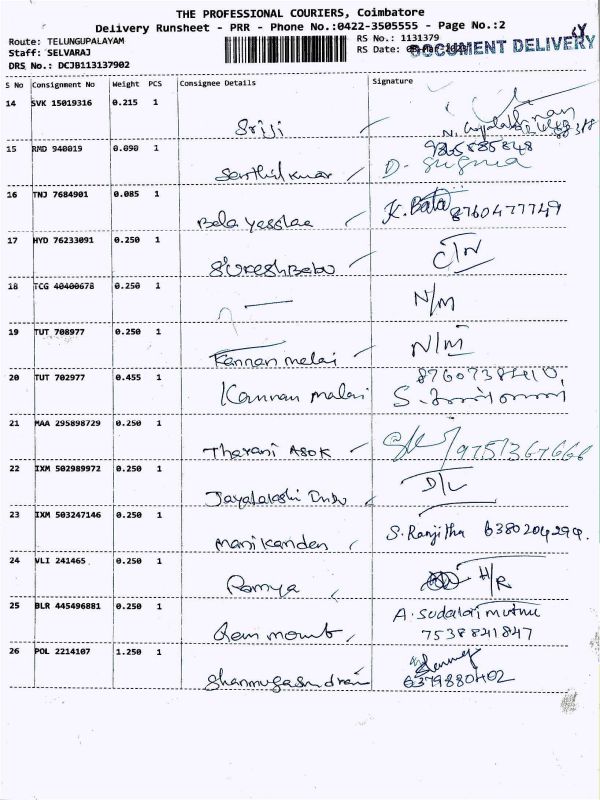 THE PROFESSIONAL COURIERS, Coimbatore
Delivery Runsheet - PRR - Phone No.:0422-3505555 - Page No.:2
Route: TELUNGUPALAYAM RS No.: 1131379
Staff: SELVARAJ RS Date: DOCUMENT DELIVERY
DRS No.: DCJB113137902
S No Consignment No Weight PCS Consignee Details Signature
14 SVK 15019316 0.215 1
Sriji
15 RMD 940019 0.090 1 9865885848
Senthil kumar D. Suguna
16 TNJ 7684901 0.085 1
K. Bala 8760477749
17 HYD 76233091 0.250 1
Suresh Babu
18 TCG 40400678 0.250 1
N/M
19 TUT 708977 0.250 1
Kannan malai N/M
20 TUT 702977 0.455 1 8760738410,
Kannan malai
21 MAA 295898729 0.250 1
Tharani Asok 9751367666
22 IXM 502989972 0.250 1
D/L
23 IXM 503247146 0.250 1
Manikanden S. Ranjitha 6380204294.
24 VLI 241465 0.250 1
Ramya H/R
25 BLR 445496881 0.250 1 A. Sudalai muthu
7538841847
26 POL 2214107 1.250 1
6379880402